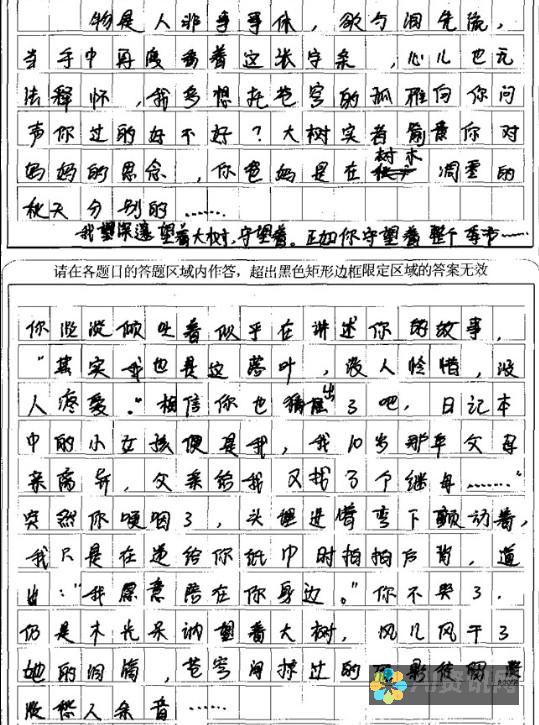 物是人非事事休，欲与泪先流，
当手中再度看着这张字条，心儿也无
法释怀，我多想托苍穹的孤雁向你问
声你过的好不好？大树实着简意你对
妈妈的思念，你爸妈是在树木凋零的
秋天分别的……
我望深邃望着大树，守望着。正如你守望着整个季节……
请在各题目的答题区域内作答，超出黑色矩形边框限定区域的答案无效
你淡淡倾吐着似乎在讲述你的故事，
“其实我也是这落叶，没人怜惜，没
人疼爱。”相信你也猜出了吧，日记本
中的小女孩便是我，我10岁那年父母
亲离异，父亲给我又找了个继母……”
突然你哽咽了，头埋进臂弯下颤动着，
我只是在递给你纸巾时拍拍后背，道
出：“我愿意陪在你身边。”你不哭了，
仍是木光呆讷望着大树，风儿风干了
她的泪滴，苍穹间掠过的
没惊人余音……